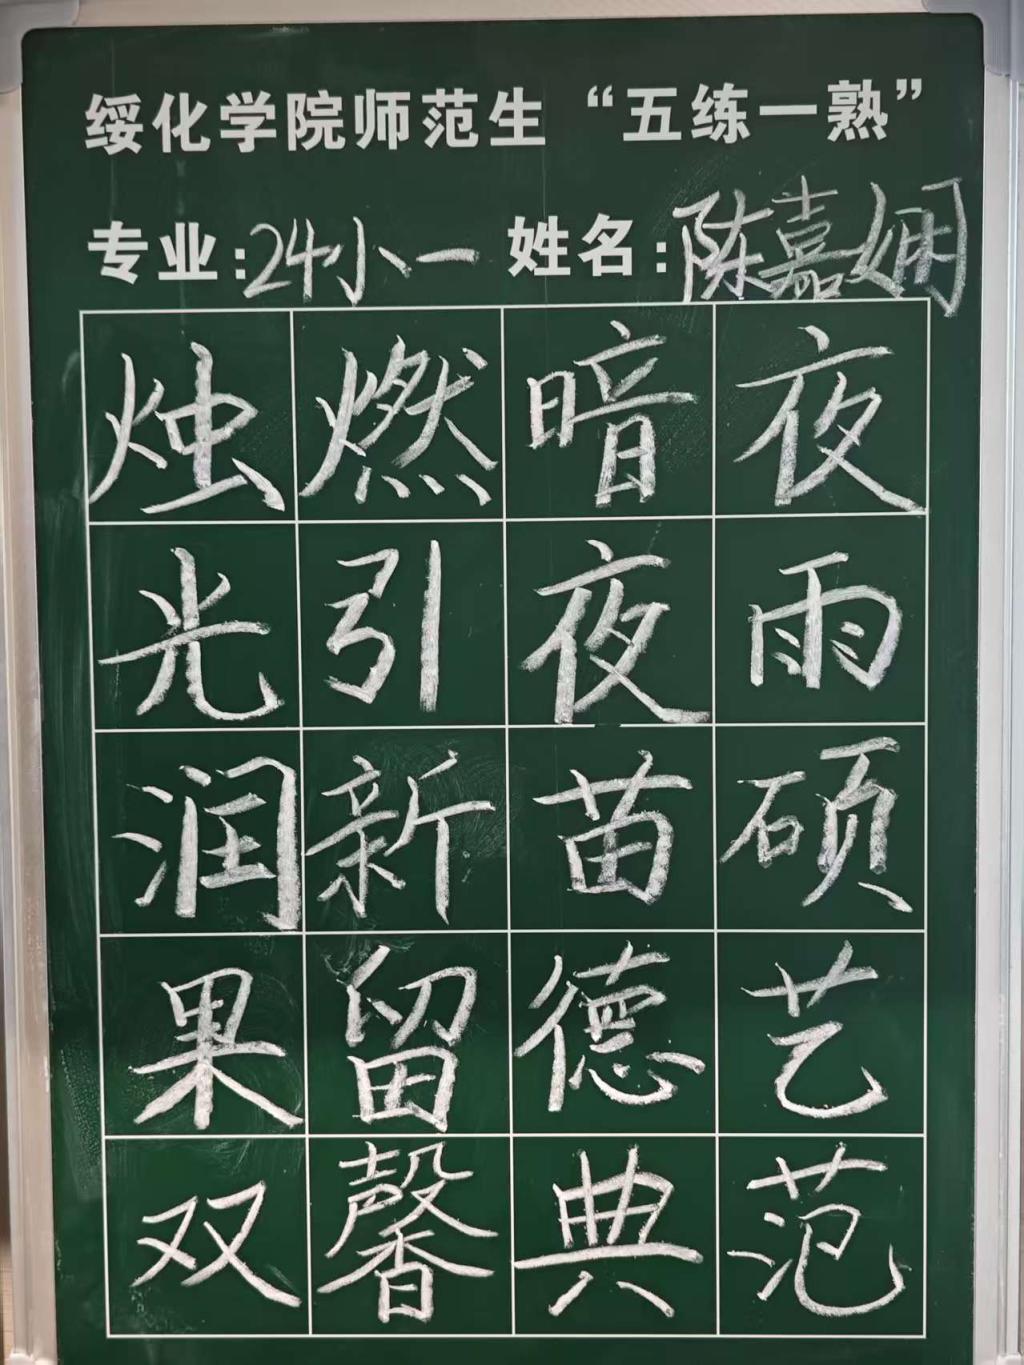 绥化学院师范生“五练一熟”
专业:24小一 姓名:陈嘉娴
烛燃暗夜
光引夜雨
润新苗硕
果留德艺
双馨典范